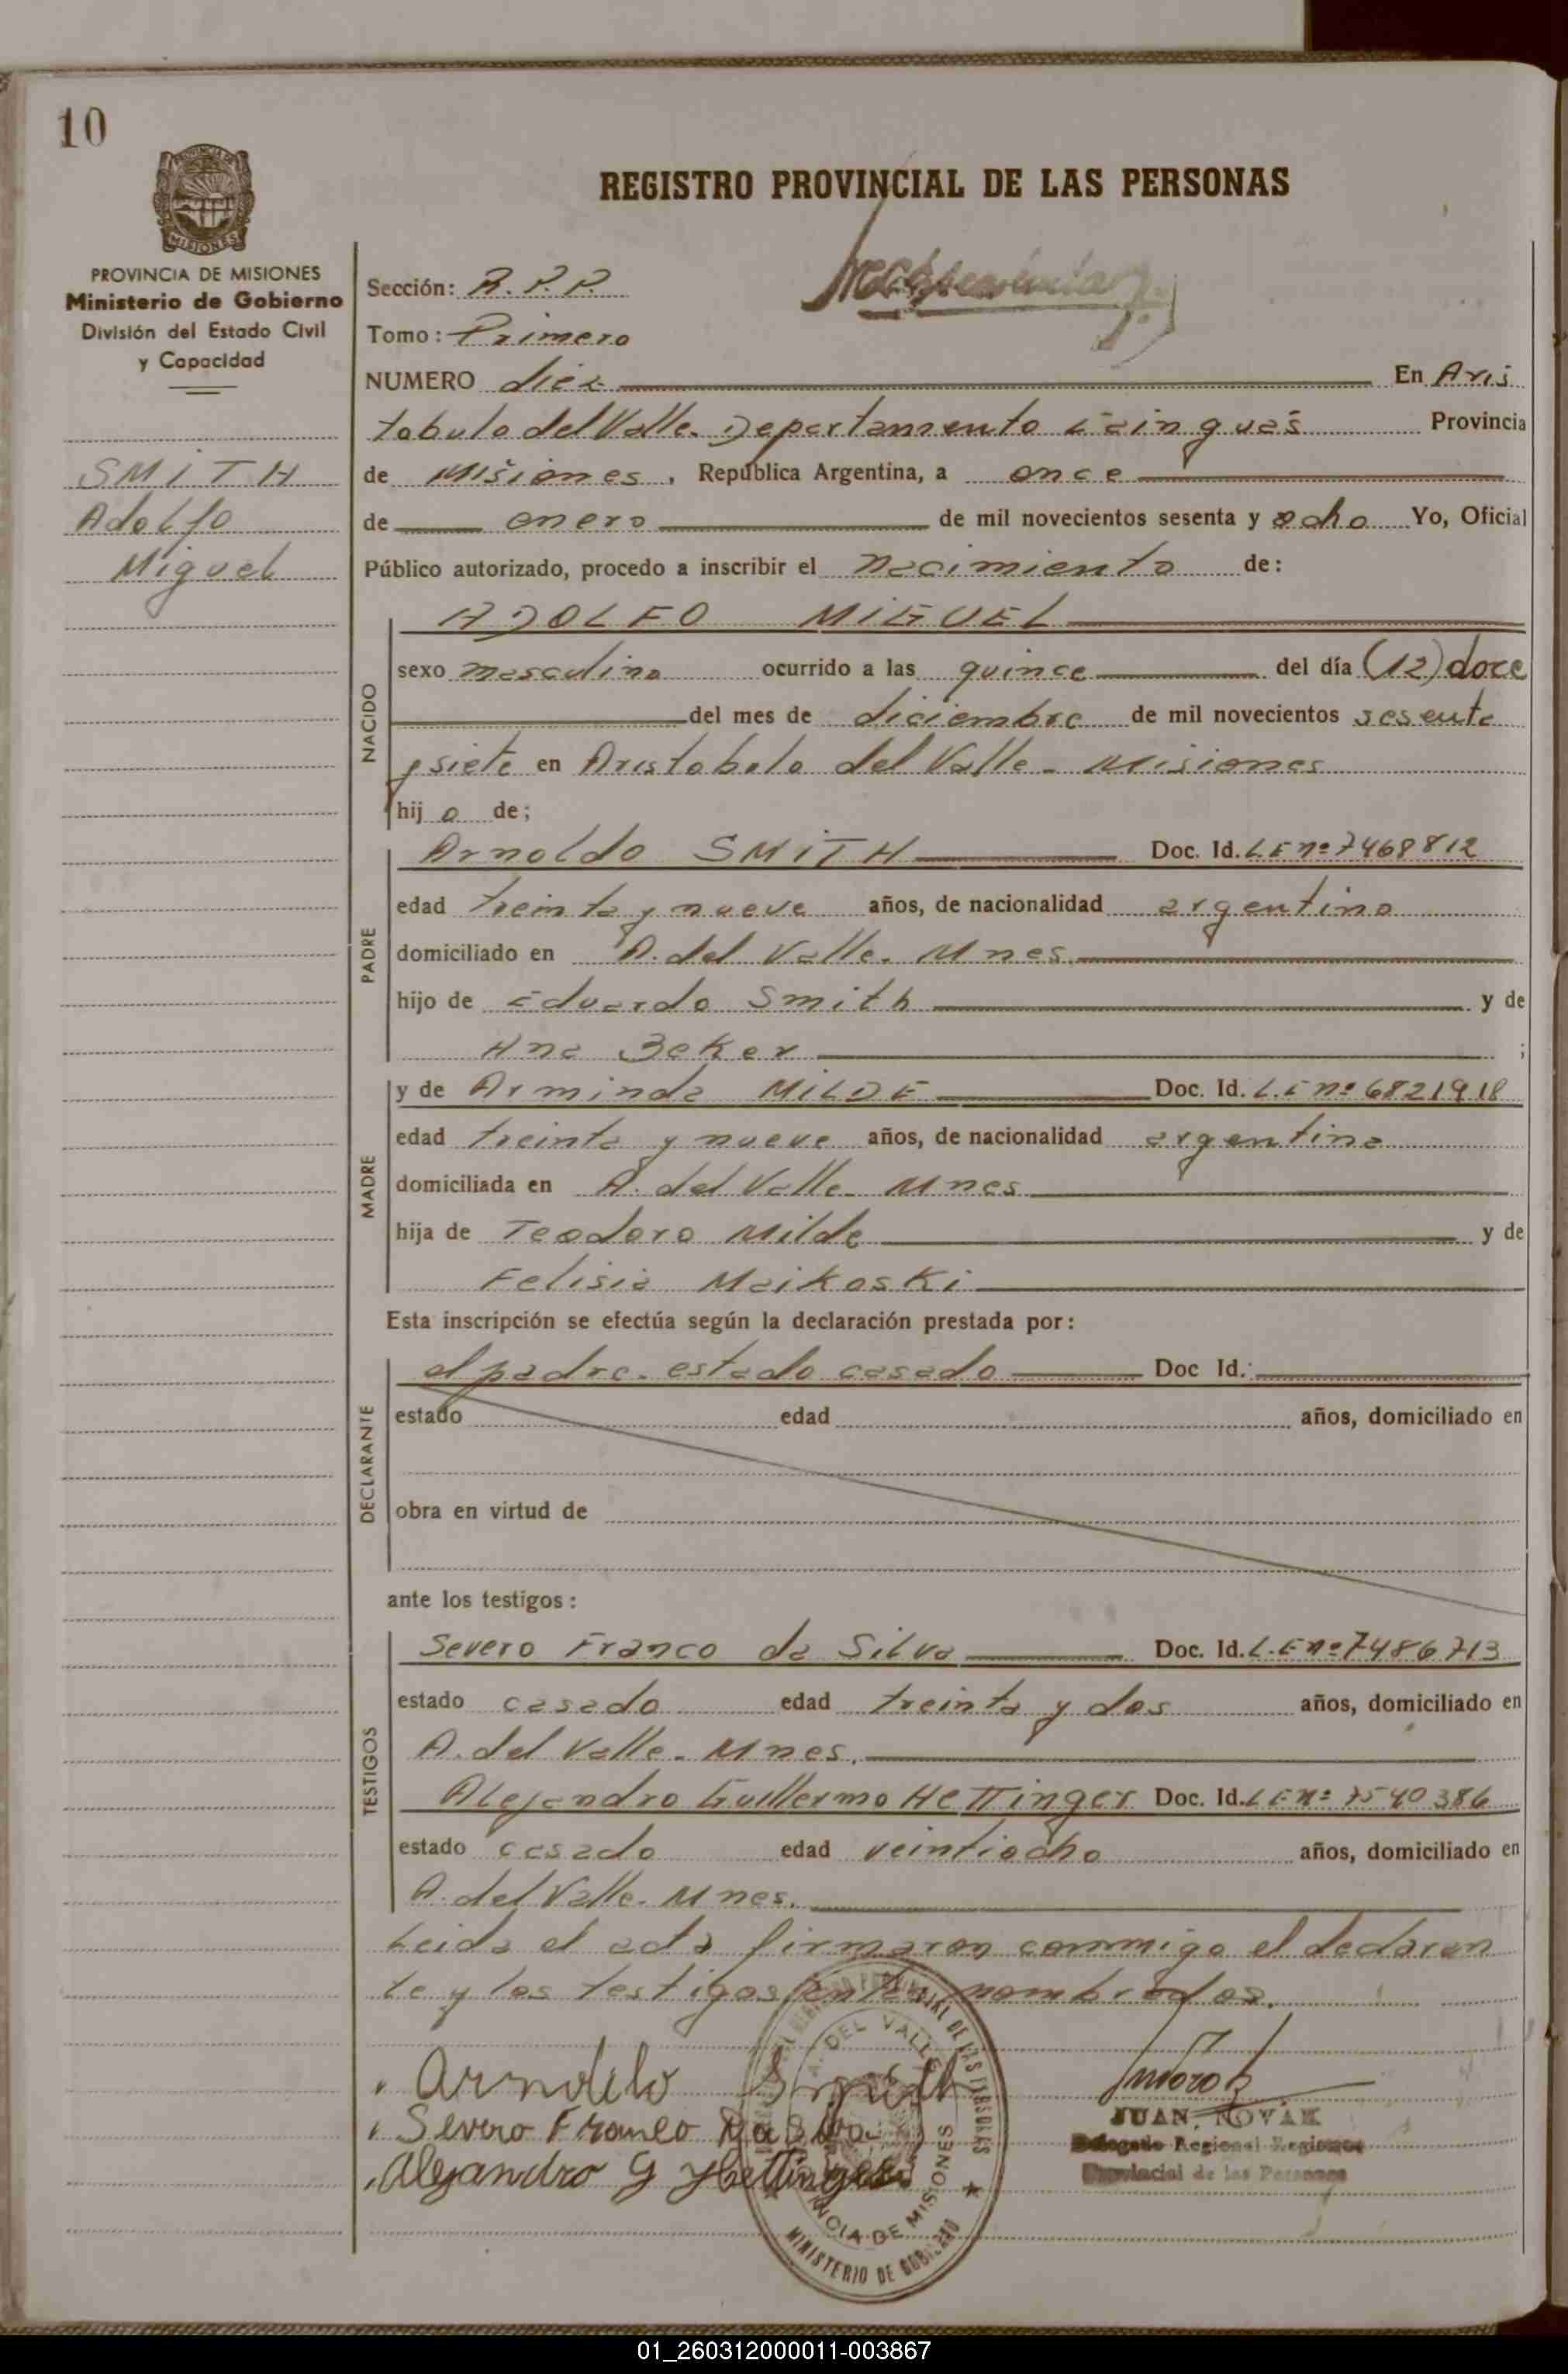 10
PROVINCIA DE MISIONES
Ministerio de Gobierno
División del Estado Civil
y Capacidad
SMITH
Adolfo
Miguel
REGISTRO PROVINCIAL DE LAS PERSONAS
Sección: R.P.P.
Tomo: Primero
NUMERO diez En Aris
tobulo del Valle. Departamento Cainguás Provincia
de Misiones, República Argentina, a once
de enero de mil novecientos sesenta y ocho Yo, Oficial
Público autorizado, procedo a inscribir el nacimiento de:
NACIDO
ADOLFO MIGUEL
sexo masculino ocurrido a las quince del día (12) doce
del mes de diciembre de mil novecientos sesenta
y siete en Aristobolo del Valle - Misiones
hij o de;
PADRE
Arnoldo SMITH Doc. Id. L.E nº 7468812
edad treinta y nueve años, de nacionalidad argentino
domiciliado en A. del Valle. Mnes.
hijo de Eduardo Smith y de
Ana Beker ;
MADRE
y de Arminda MILDE Doc. Id. L.E nº 6821918
edad treinta y nueve años, de nacionalidad argentina
domiciliada en A. del Valle - Mnes
hija de Teodoro Milde y de
Felisia Maikoski
Esta inscripción se efectúa según la declaración prestada por:
DECLARANTE
el padre. estado casado Doc Id.:
estado edad años, domiciliado en
obra en virtud de
ante los testigos:
TESTIGOS
Severo Franco da Silva Doc. Id. L.E nº 7486713
estado casado edad treinta y dos años, domiciliado en
A. del Valle. Mnes.
Alejandro Guillermo Hettinger Doc. Id. L.E nº 7540386
estado casado edad veintiocho años, domiciliado en
A. del Valle. Mnes.
Leida el acta firmaron conmigo el declaran
te y los testigos antes nombrados.
Arnoldo Smith
Severo Franco Da Silva
Alejandro G Hettinger
A. DEL VALLE
PROVINCIA DE MISIONES
MINISTERIO DE GOBIERNO
JUAN NOVAK
Delegado Regional Registro
Provincial de las Personas
01_260312000011-003867